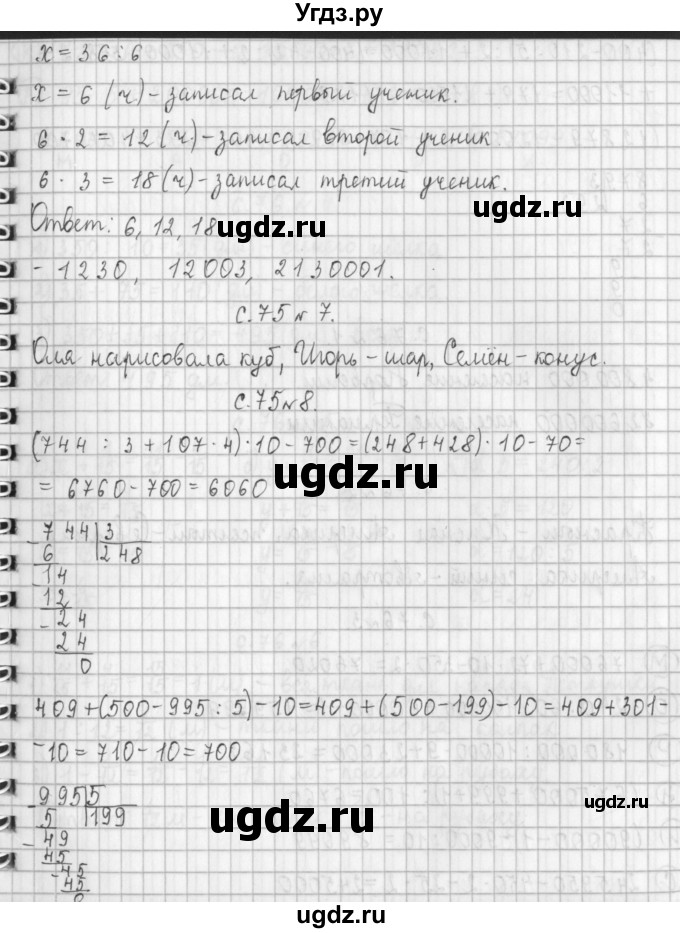 Угдз.ру
x = 36 : 6
x = 6 (ч) - записал первый ученик.
6 · 2 = 12 (ч) - записал второй ученик
6 · 3 = 18 (ч) - записал третий ученик.
Ответ: 6, 12, 18
- 1230, 12003, 2130001.
с. 75 № 7.
Оля нарисовала куб, Игорь - шар, Семён - конус.
с. 75 № 8.
(744 : 3 + 107 · 4) · 10 - 700 = (248 + 428) · 10 - 70 =
= 6760 - 700 = 6060
- 744 | 3
6 | 248
- 14
12
- 24
24
0
409 + (500 - 995 : 5) - 10 = 409 + (500 - 199) - 10 = 409 + 301 -
- 10 = 710 - 10 = 700
- 995 | 5
5 | 199
- 49
45
- 45
45
0
ugdz.ru
ugdz.ru
ugdz.ru
ugdz.ru
ugdz.ru
ugdz.ru
ugdz.ru
ugdz.ru